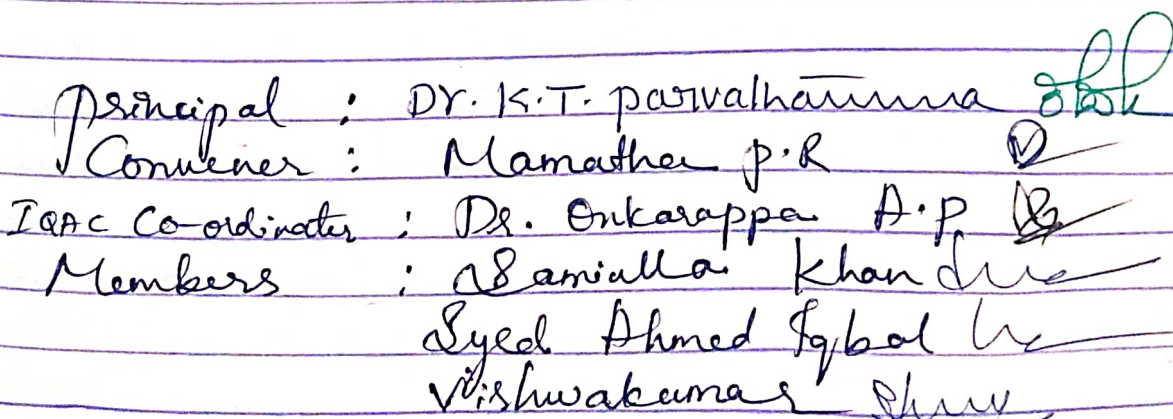 Principal : Dr. K.T. parvathamma
Convener : Mamatha p.R
IQAC Co-ordinator : Dr. Onkarappa A.P.
Members : Samiulla Khan
Syed Ahmed Iqbal
Vishwakumar